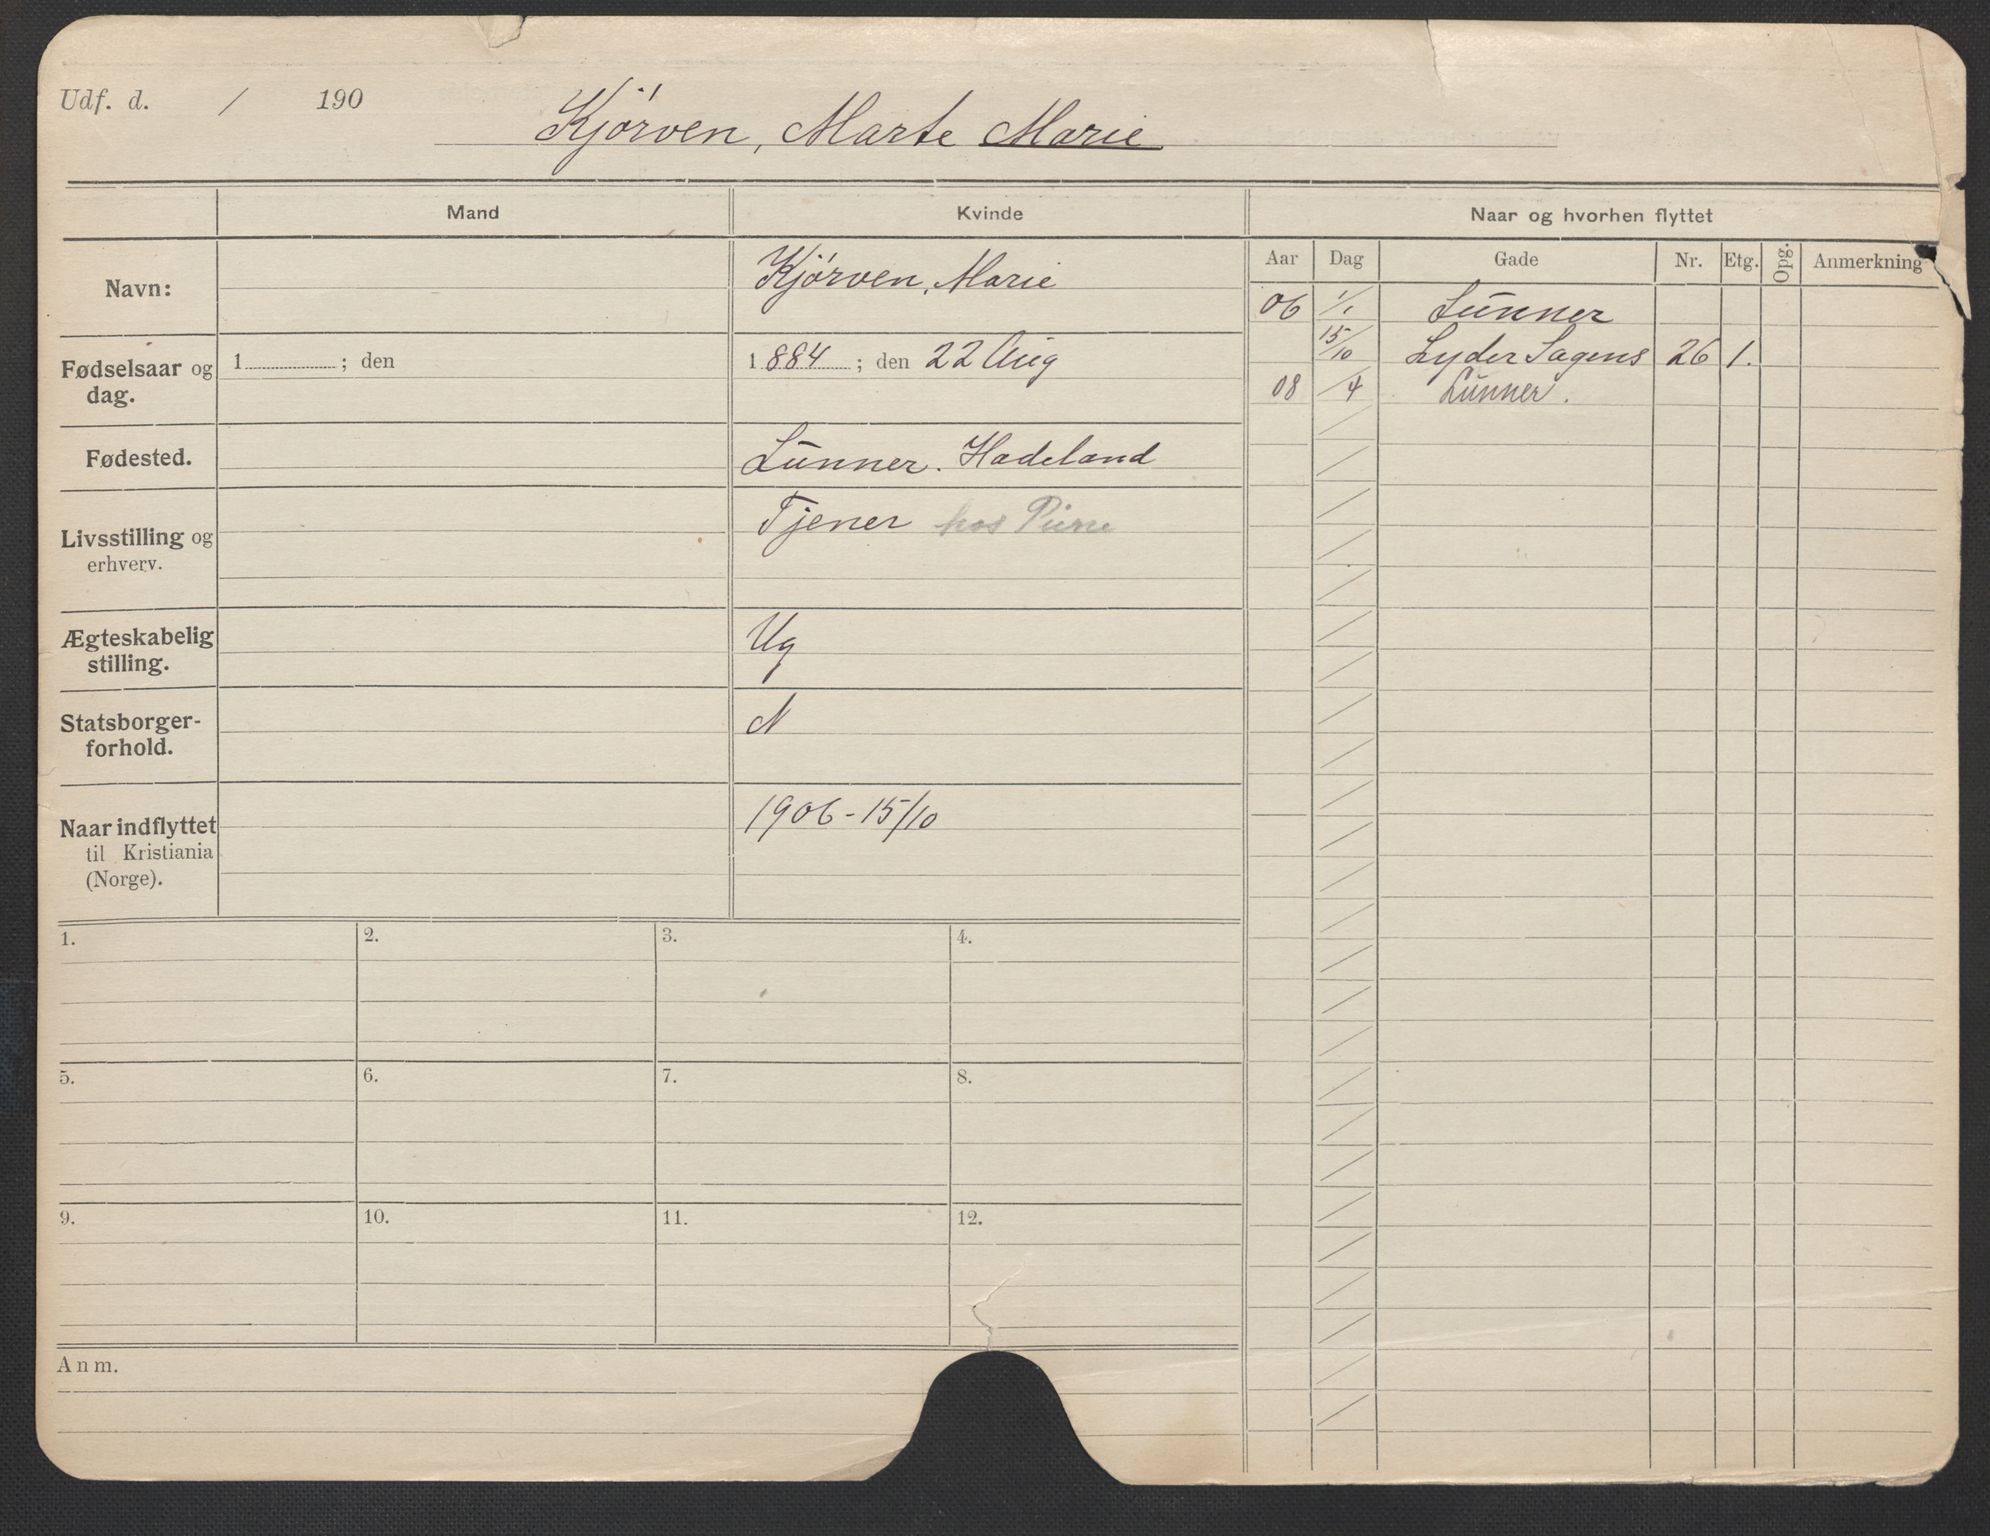 Udf. d. / 190
Kjörven, Marte Marie
Mand
Kvinde
Naar og hvorhen flyttet
Aar Dag Gade Nr. Etg. Opg. Anmerkning
Navn:
Kjørven, Marie
06 1/1 Lunner
15/10 Lyder Sagens 26 1.
08 /4 Lunner.
Fødselsaar og dag.
1 ; den
1884 ; den 22 Aug
Fødested.
Lunner. Hadeland
Livsstilling og
erhverv.
Tjener hos
Ægteskabelig
stilling.
Ug
Statsborger-
forhold.
N
Naar indflyttet
til Kristiania
(Norge).
1906-15/10
1. 2. 3. 4.
5. 6. 7. 8.
9. 10. 11. 12.
Anm.